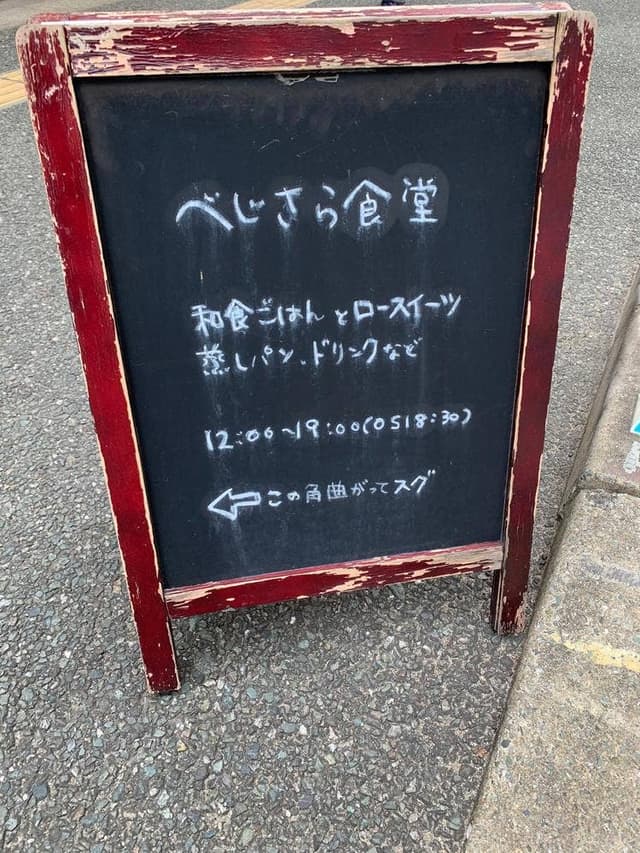 べじさら食堂
和食ごはんとロースイーツ
蒸しパン、ドリンクなど
12:00〜19:00(OS18:30)
この角曲がってスグ